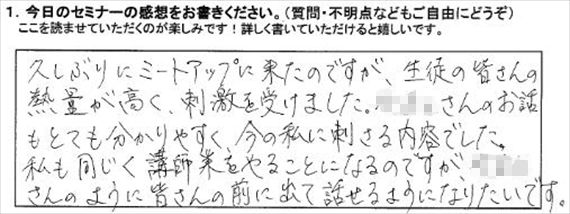 1. 今日のセミナーの感想をお書きください。(質問・不明点などもご自由にどうぞ)
ここを読ませていただくのが楽しみです！詳しく書いていただけると嬉しいです。
久しぶりにミートアップに来たのですが、生徒の皆さんの
熱量が高く、刺激を受けました。さんのお話
もとても分かりやすく、今の私に刺さる内容でした。
私も同じく講師業をやることになるのですが、
さんのように皆さんの前に出て話せるようになりたいです。